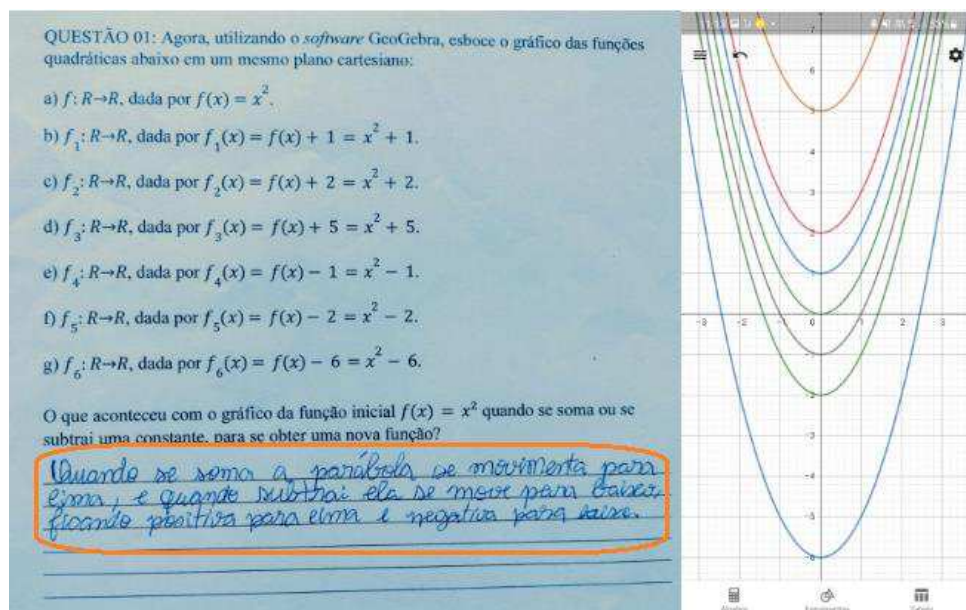 QUESTÃO 01: Agora, utilizando o software GeoGebra, esboce o gráfico das funções
quadráticas abaixo em um mesmo plano cartesiano:
a) f: R→R, dada por f(x) = x².
b) f₁: R→R, dada por f₁(x) = f(x) + 1 = x² + 1.
c) f₂: R→R, dada por f₂(x) = f(x) + 2 = x² + 2.
d) f₃: R→R, dada por f₃(x) = f(x) + 5 = x² + 5.
e) f₄: R→R, dada por f₄(x) = f(x) − 1 = x² − 1.
f) f₅: R→R, dada por f₅(x) = f(x) − 2 = x² − 2.
g) f₆: R→R, dada por f₆(x) = f(x) − 6 = x² − 6.
O que aconteceu com o gráfico da função inicial f(x) = x² quando se soma ou se
subtrai uma constante, para se obter uma nova função?
Quando se soma a parábola se movimenta para
cima, e quando subtrai ela se move para baixo,
ficando positiva para cima e negativa para baixo.
7
6
5
4
3
2
1
-3 -2 0 2 3
-2
-3
-4
-5
-6